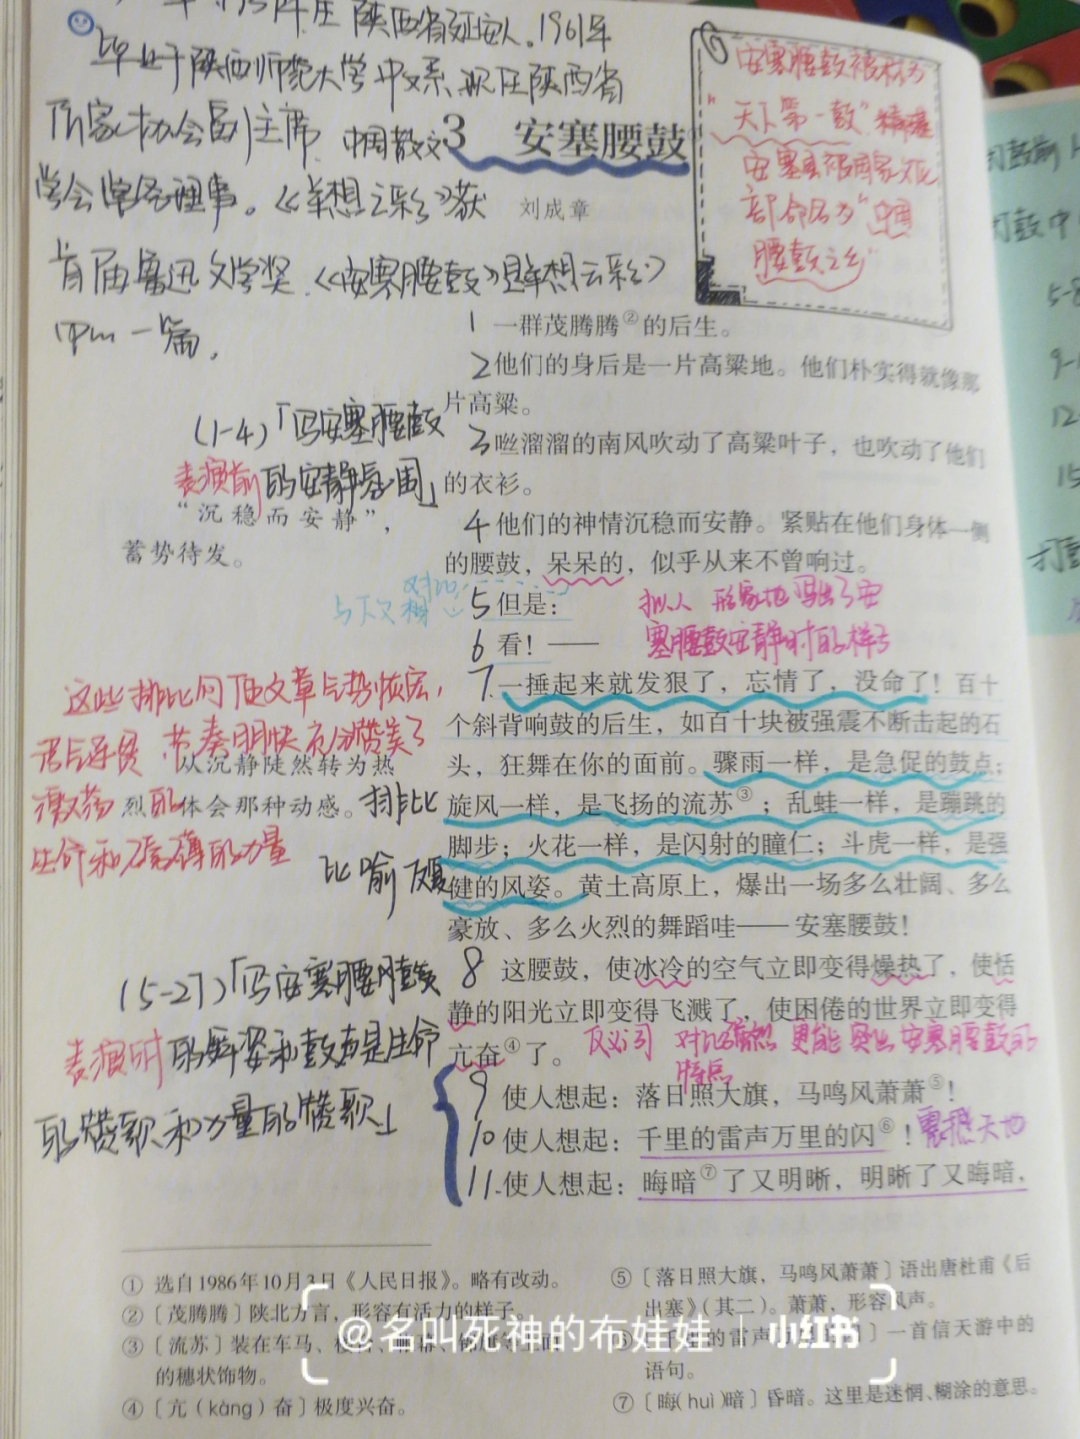 陕西省延安人。1961年
毕业于陕西师范大学中文系,现任陕西省
作家协会副主席、中国散文
学会常务理事。《羊想云彩》获
首届鲁迅文学奖.《安塞腰鼓》是《羊想云彩》
中的一篇.
3 安塞腰鼓
刘成章
安塞腰鼓被称为
“天下第一鼓”
安塞县被国家文化
部命名为“中国
腰鼓之乡”
1 一群茂腾腾②的后生。
2 他们的身后是一片高粱地。他们朴实得就像那
片高粱。
3 咝溜溜的南风吹动了高粱叶子,也吹动了他们
的衣衫。
4 他们的神情沉稳而安静。紧贴在他们身体一侧
的腰鼓,呆呆的,似乎从来不曾响过。
(1-4)「写安塞腰鼓
表演前的安静氛围」
“沉稳而安静”,
蓄势待发。
对比
与下文
5 但是:
拟人 形象地写出了安
塞腰鼓安静时的样子
6 看!——
7. 一捶起来就发狠了,忘情了,没命了!百十
个斜背响鼓的后生,如百十块被强震不断击起的石
头,狂舞在你的面前。骤雨一样,是急促的鼓点;
旋风一样,是飞扬的流苏③;乱蛙一样,是蹦跳的
脚步;火花一样,是闪射的瞳仁;斗虎一样,是强
健的风姿。黄土高原上,爆出一场多么壮阔、多么
豪放、多么火烈的舞蹈哇——安塞腰鼓!
这些排比句使文章气势恢宏,
语气连贯,节奏明快,充分赞美了
从沉静陡然转为热
激荡的
烈,体会那种动感。
生命和磅礴的力量
排比
比喻
8 这腰鼓,使冰冷的空气立即变得燥热了,使恬
静的阳光立即变得飞溅了,使困倦的世界立即变得
亢奋④了。
反义词 对比 更能突出安塞腰鼓的
特点
(5-27)「写安塞腰鼓
表演时的舞姿和鼓声是生命
的赞歌和力量的赞歌」
9 使人想起:落日照大旗,马鸣风萧萧⑤!
10 使人想起:千里的雷声万里的闪⑥!
震撼天地
11. 使人想起:晦暗⑦了又明晰,明晰了又晦暗,
① 选自1986年10月3日《人民日报》。略有改动。
②〔茂腾腾〕陕北方言,形容有活力的样子。
③〔流苏〕装在车马、
的穗状饰物。
④〔亢(kàng)奋〕极度兴奋。
⑤〔落日照大旗,马鸣风萧萧〕语出唐杜甫《后
出塞》(其二)。萧萧,形容风声。
的雷声 〕一首信天游中的
语句。
⑦〔晦(huì)暗〕昏暗。这里是迷惘、糊涂的意思。
@名叫死神的布娃娃 | 小红书
打鼓前
打鼓中
5-8
9-
12
15
打鼓